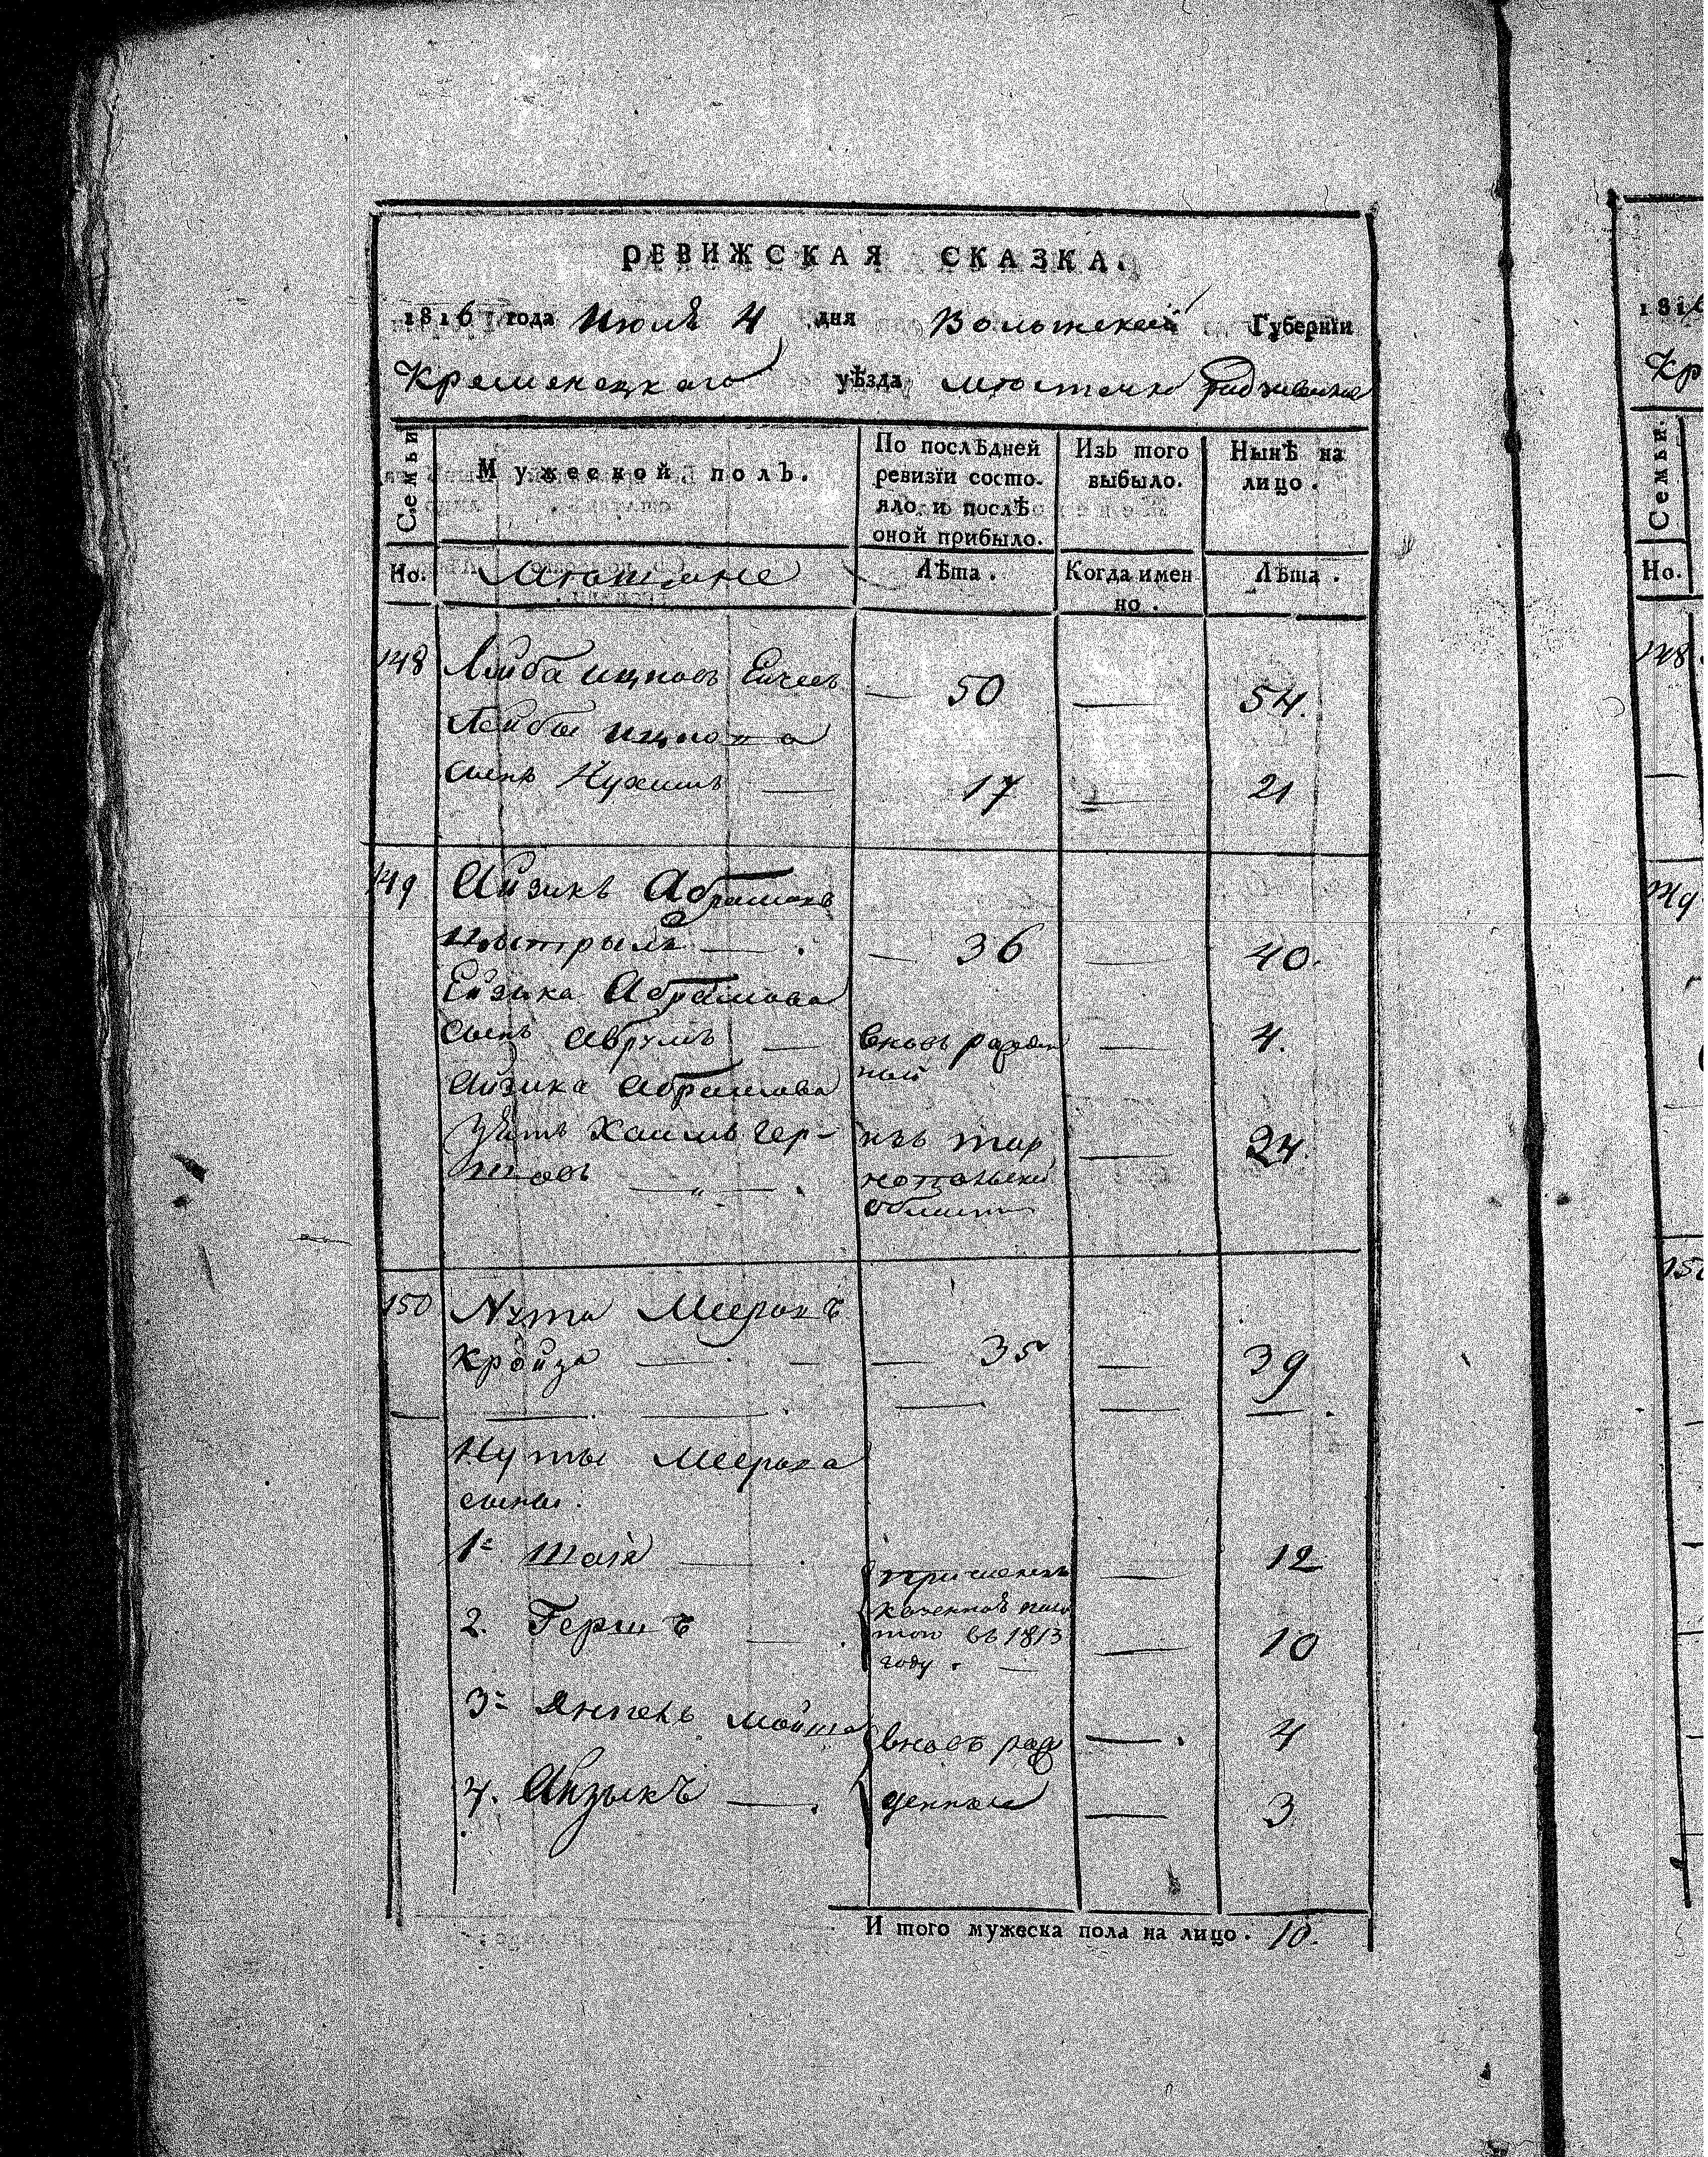 РЕВИЖСКАЯ СКАЗКА.
1816 года Июля 4 дня Волынской Губерніи
Кременецкаго уѣзда мѣстечко
Семьи
Мужеской полъ.
По послѣдней ревизіи состояло, и послѣ оной прибыло.
Изъ того выбыло.
Нынѣ на лицо.
Но.
Лѣта.
Когда именно.
Лѣта.
148 Лейба Ицковъ — 50 — 54.
Лейбы Ицкова
сынъ Нухимъ — 17 — 21
149 Айзикъ Абрамовъ
— 36 — 40.
Ейзыка Абрамова
сынъ Аврумъ — вновь рожденной — 4.
Айзика Абрамова
Зять Хаимъ Гер-
шковъ — изъ Тарнопольской области — 24.
150 Нута Мееровъ
Кройза — — 35 — 39
Нуты Меерова
сыны.
1й Шая — 12
2. Гершъ — 10
въ 1813
году. —
3й Янкель Мошко — вновь рож — 4
4. Айзыкъ — денные — 3
И того мужеска пола на лицо. 10.
148
149
Семьи.
Но.